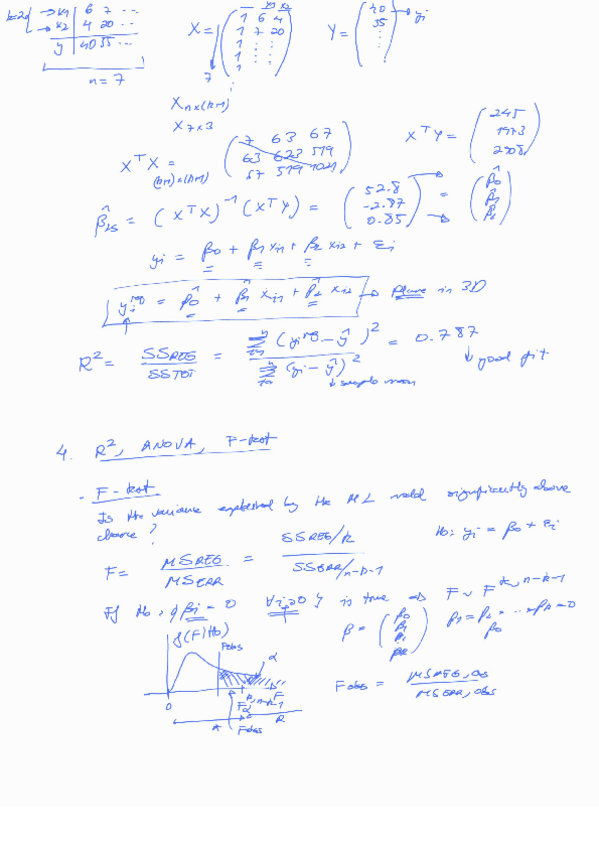 k=2 → x1 | 6 7 ...
→ x2 | 4 20 ...
y | 40 35 ...
n = 7
X = ( 1 6 4
1 7 20
1 : :
1 : :
1
7
Y = ( 40 → yi
35
:
:
X n×(k+1)
X 7×3
XᵀX = ( 7 63 67
63 623 519
67 519 1021 )
(k+1)×(k+1)
XᵀY = ( 245
1973
2908 )
β̂LS = (XᵀX)⁻¹ (XᵀY) = ( 52.8
-2.87
0.85 ) = ( β̂0
β̂1
β̂2 )
yi = β0 + β1 xi1 + β2 xi2 + εi
yi^reg = β̂0 + β̂1 xi1 + β̂2 xi2 → Plane in 3D
R² = SSREG / SSTOT = Σ (yi^reg - ŷ)² / Σ (yi - ŷ)² = 0.787
↓ good fit
↓ sample mean
4. R², ANOVA, F-test
- F-test
Is the variance explained by the ML model significantly above
chance? H0: yi = β0 + εi
F = MSREG / MSERR = SSREG/k / SSERR/n-k-1
If H0, {βi = 0 ∀i>0} is true ⇒ F ~ F k, n-k-1
β = ( β0
β1
:
βk ) β1 = β2 = ... = βk = 0
β0
f(F|H0)
Pobs
α
0
F
Fα k, n-k-1
A R
Fobs
Fobs = MSREG,obs / MSERR,obs